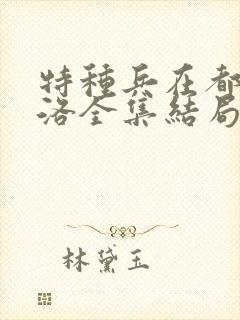 特種兵在都
洛全集結局
林黛玉